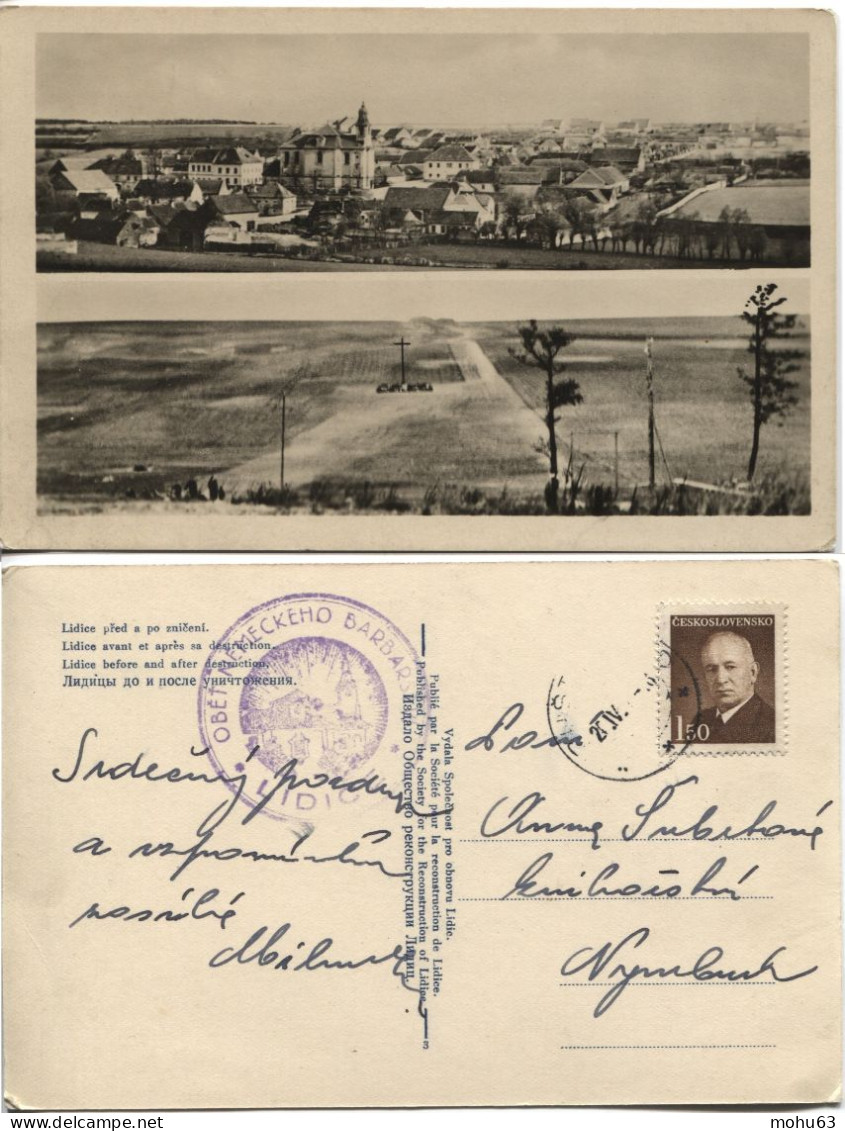 Lidice před a po zničení.
Lidice avant et après sa destruction.
Lidice before and after destruction.
Лидицы до и после уничтожения.
OBĚŤ NĚMECKÉHO BARBARS
* LIDICE *
Vydala Společnost pro obnovu Lidic.
Publié par la Société pour la reconstruction de Lidice.
Published by the Society for the Reconstruction of Lidice.
Издало Общество реконструкции Лидиц.
3
ČESKOSLOVENSKO
1.50
IV.
Srdečný pozdrav
a vzpomínku
posílá
Anna Šubrtová
knihařství
Nymburk
mohu63